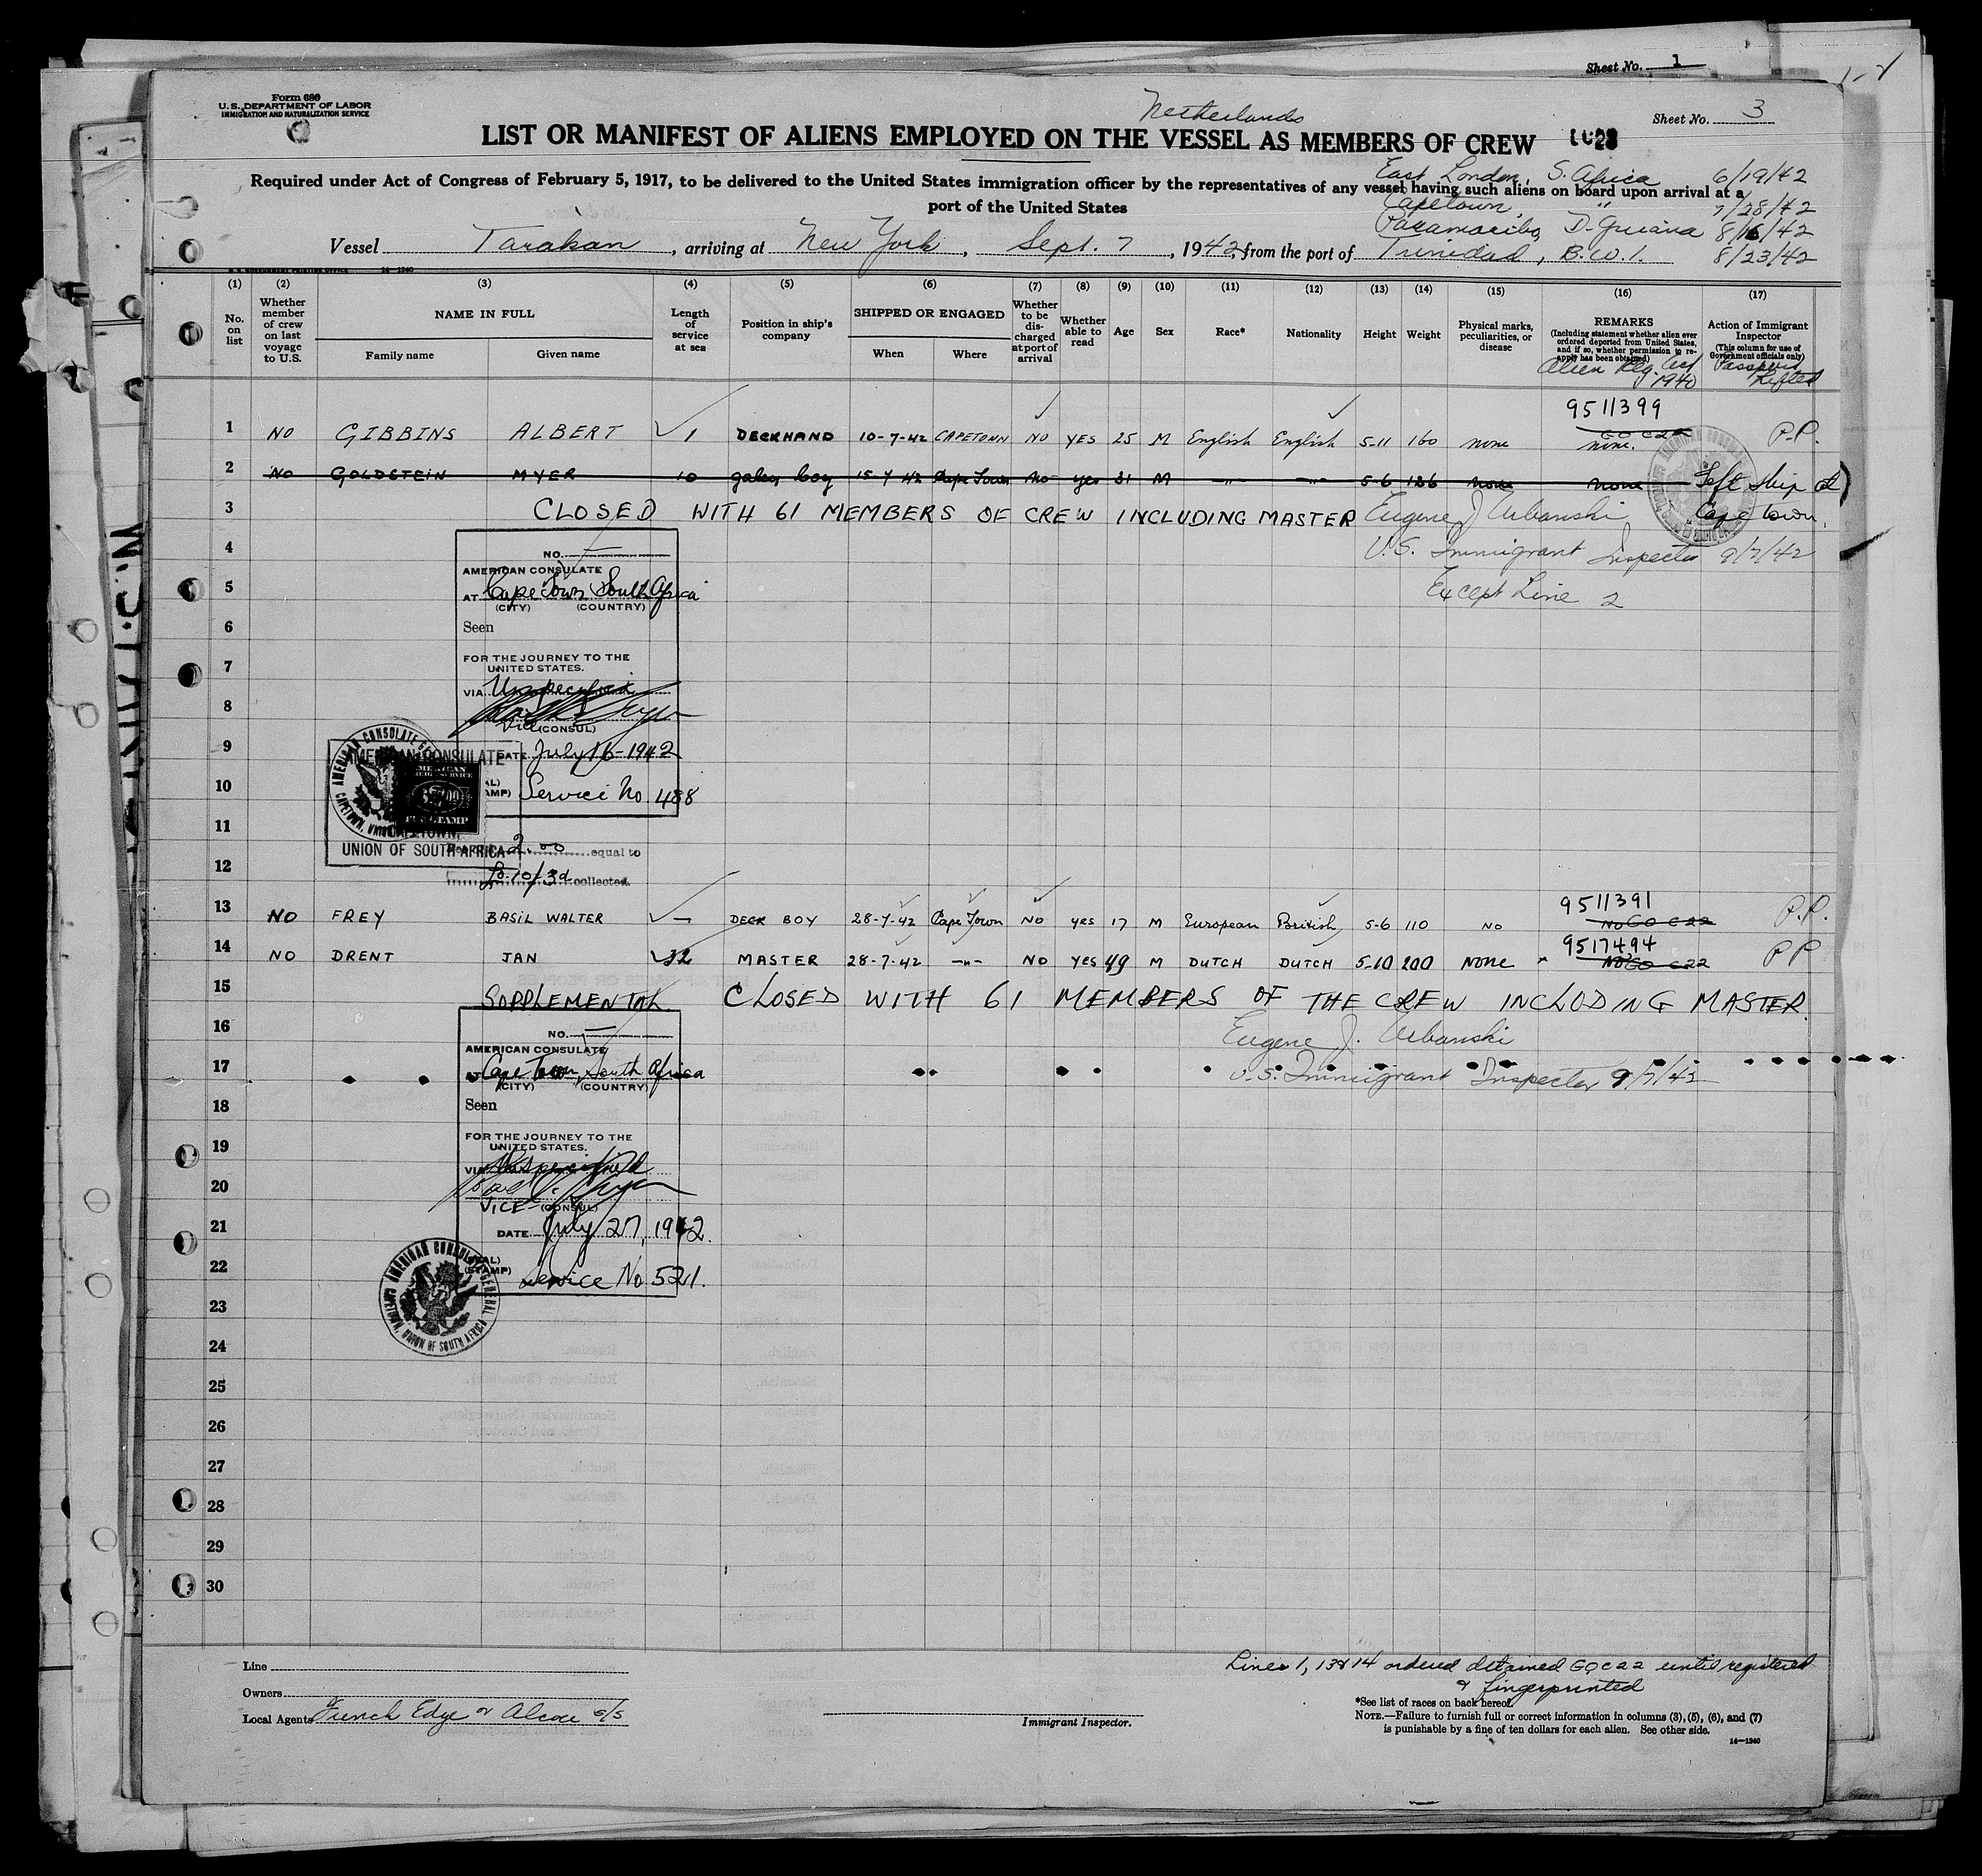 Sheet No. 1
Form 680
U.S. DEPARTMENT OF LABOR
IMMIGRATION AND NATURALIZATION SERVICE
Netherlands
Sheet No. 3
LIST OR MANIFEST OF ALIENS EMPLOYED ON THE VESSEL AS MEMBERS OF CREW
East London, S. Africa 6/19/42
Required under Act of Congress of February 5, 1917, to be delivered to the United States immigration officer by the representatives of any vessel having such aliens on board upon arrival at a
port of the United States
Capetown, " 7/28/42
Paramaribo, D. Guiana 8/16/42
Vessel Tarakan, arriving at New York, Sept. 7, 1942, from the port of Trinidad, B.W.I. 8/23/42
U.S. GOVERNMENT PRINTING OFFICE 14-1240
(1) (2) (3) (4) (5) (6) (7) (8) (9) (10) (11) (12) (13) (14) (15) (16) (17)
No. on list
Whether member of crew on last voyage to U.S.
NAME IN FULL
Family name
Given name
Length of service at sea
Position in ship's company
SHIPPED OR ENGAGED
When
Where
Whether to be discharged at port of arrival
Whether able to read
Age
Sex
Race*
Nationality
Height
Weight
Physical marks, peculiarities, or disease
REMARKS
(Including statement whether alien ever ordered deported from United States, and if so, whether permission to reapply has been obtained)
Alien Reg. Act 1940
Action of Immigrant Inspector
(This column for use of Government officials only)
Passport Lifted
9511399
1 NO GIBBINS ALBERT 1 DECKHAND 10-7-42 CAPETOWN NO YES 25 M English English 5-11 160 none none. P.P.
2 No GOLDSTEIN MYER 10 galley boy 15-7-42 Cape Town No yes 21 M -"- -"- 5-6 126 none none Left Ship at
3 CLOSED WITH 61 MEMBERS OF CREW INCLUDING MASTER Eugene J Urbanski Cape Town.
4 U.S. Immigrant Inspector 9/7/42
NO. —
AMERICAN CONSULATE
5 AT Cape Town South Africa Except Line 2
(CITY) (COUNTRY)
6 Seen
7 FOR THE JOURNEY TO THE
UNITED STATES.
VIA Unspecified
8
Vice (CONSUL)
9 DATE July 16-1942
10 Service No 488
AMERICAN CONSULATE
UNION OF SOUTH AFRICA
11
2.00 equal to
12
10/3d collected.
9511391
13 NO FREY BASIL WALTER — DECK BOY 28-7-42 Cape Town NO yes 17 M European British 5-6 110 NO P.P.
9517494
14 NO DRENT JAN 32 MASTER 28-7-42 -"- NO yes 49 M DUTCH DUTCH 5-10 200 NONE P P
15 SUPPLEMENTAL CLOSED WITH 61 MEMBERS OF THE CREW INCLUDING MASTER.
16 Eugene J. Urbanski
NO. —
AMERICAN CONSULATE
17 AT Cape Town, South Africa U.S. Immigrant Inspector 9/7/42
(CITY) (COUNTRY)
18 Seen
19 FOR THE JOURNEY TO THE
UNITED STATES.
VIA Unspecified
20
VICE (CONSUL)
21 DATE July 27, 1942.
22 Service No 521.
AMERICAN CONSULATE GENERAL
CAPETOWN, UNION OF SOUTH AFRICA
23
24
25
26
27
28
29
30
Line
Owners
Local Agents
Lines 1, 13 & 14 ordered detained GOC22 until registered
& fingerprinted
Immigrant Inspector.
*See list of races on back hereof.
NOTE.—Failure to furnish full or correct information in columns (3), (5), (6), and (7)
is punishable by a fine of ten dollars for each alien. See other side.
14—1240